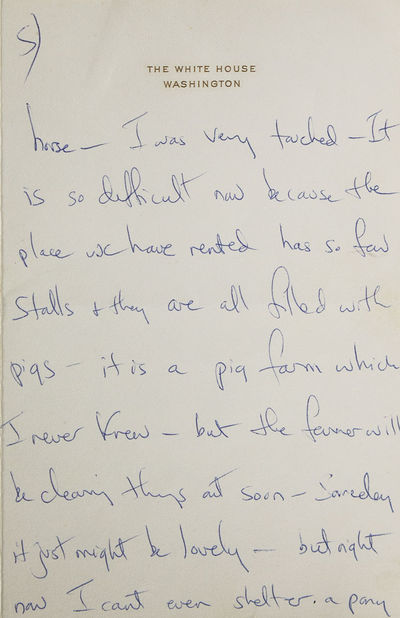 5)
THE WHITE HOUSE
WASHINGTON
horse — I was very touched — It
is so difficult now because the
place we have rented has so few
Stalls + they are all filled with
pigs — it is a pig farm which
I never knew — but the farmer will
be clearing things out soon — someday
it just might be lovely — but right
now I can't even shelter a pony